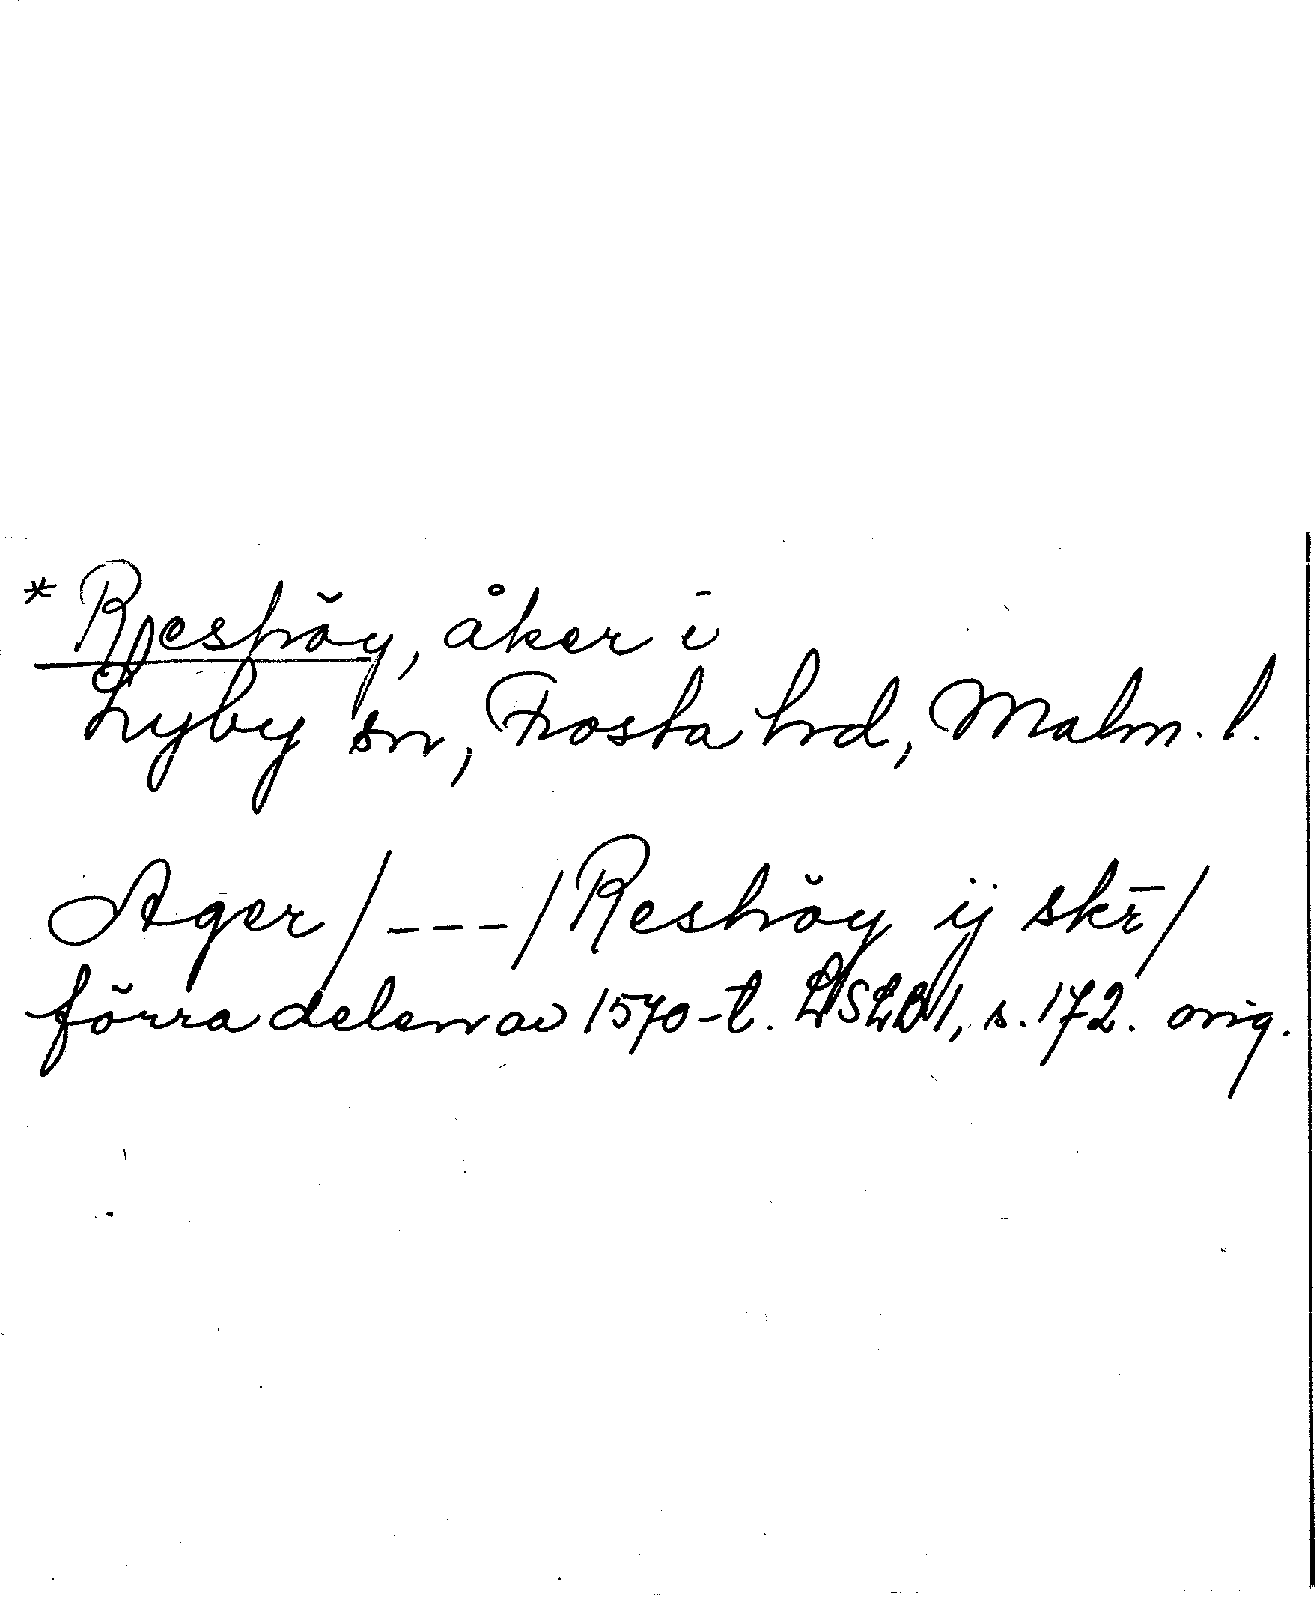 * Reshöy, åker i
Lyby sn, Frosta hd, Malm. l.
Ager /---/ Reshöy ij skr̄ /
förra delen av 1570-t. LSLB 1, s. 172. orig.